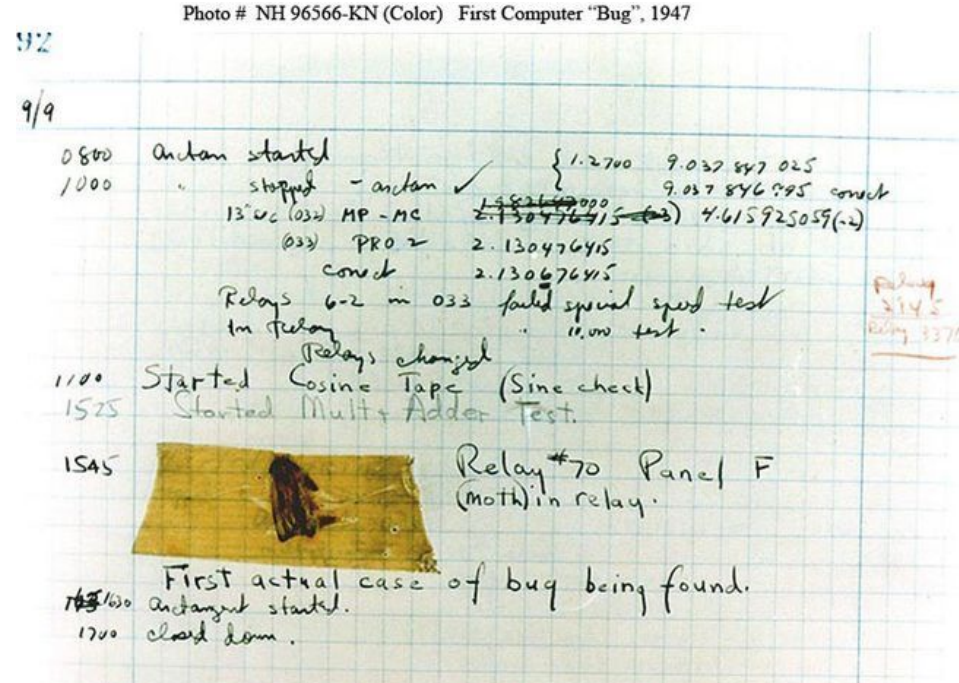 Photo # NH 96566-KN (Color) First Computer “Bug”, 1947
92
9/9
0800 arctan started { 1.2700 9.037 847 025
1000 " stopped - arctan ✓ 9.037 846 995 correct
13" uc (032) MP - MC 2.130476415 (-3) 4.615925059(-2)
(033) PRO 2 2.130476415
correct 2.130676415
Relays 6-2 in 033 failed special speed test
In Relay " 10,000 test .
Relay
Relays changed
Relay 3370
1100 Started Cosine Tape (Sine check)
1525 Started Mult + Adder Test.
1545 Relay #70 Panel F
(moth) in relay.
First actual case of bug being found.
1630 arctangent started.
1700 closed down.